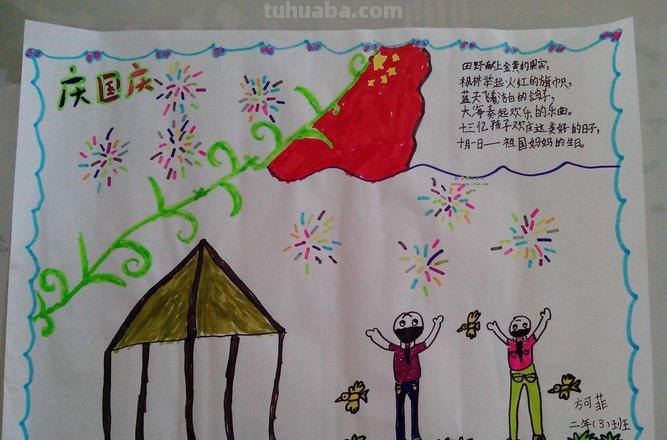 tuhuaba.com
庆国庆
田野献上金黄的果实,
枫林举起火红的旗帜,
蓝天飞着洁白的鸽子,
大海奏起欢乐的乐曲。
十三亿孩子欢庆这美好的日子,
十月一日——祖国妈妈的生日。
方可菲
二年(3)班